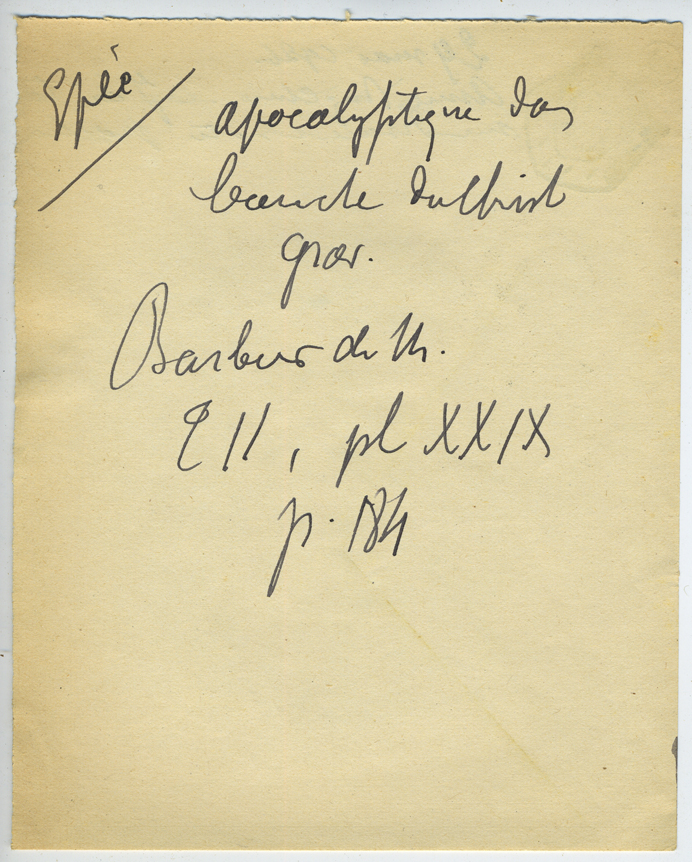 Epée
apocalyptique dans
bouche du Christ
grav.
Barbier de M.
T II, pl XXIX
p. 184